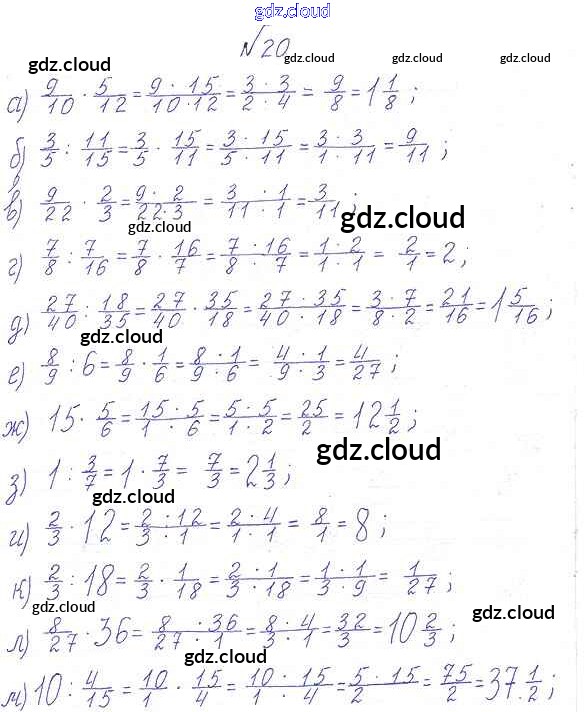 gdz.cloud
№20
gdz.cloud gdz.cloud
а) 9/10 · 5/12 = 9 · 15/10 · 12 = 3 · 3/2 · 4 = 9/8 = 1 1/8 ;
gdz.cloud gdz.cloud
б) 3/5 : 11/15 = 3/5 · 15/11 = 3 · 15/5 · 11 = 3 · 3/1 · 11 = 9/11 ;
в) 9/22 · 2/3 = 9 · 2/22 · 3 = 3 · 1/11 · 1 = 3/11 ;
gdz.cloud gdz.cloud
г) 7/8 : 7/16 = 7/8 · 16/7 = 7 · 16/8 · 7 = 1 · 2/1 · 1 = 2/1 = 2 ;
д) 27/40 : 18/35 = 27/40 · 35/18 = 27 · 35/40 · 18 = 3 · 7/8 · 2 = 21/16 = 1 5/16 ;
gdz.cloud
е) 8/9 : 6 = 8/9 · 1/6 = 8 · 1/9 · 6 = 4 · 1/9 · 3 = 4/27 ;
ж) 15 · 5/6 = 15 · 5/1 · 6 = 5 · 5/1 · 2 = 25/2 = 12 1/2 ;
gdz.cloud gdz.cloud
з) 1 : 3/7 = 1 · 7/3 = 7/3 = 2 1/3 ;
gdz.cloud
и) 2/3 · 12 = 2 · 12/3 · 1 = 2 · 4/1 · 1 = 8/1 = 8 ;
gdz.cloud
к) 2/3 : 18 = 2/3 · 1/18 = 2 · 1/3 · 18 = 1 · 1/3 · 9 = 1/27 ;
gdz.cloud gdz.cloud
л) 8/27 · 36 = 8 · 36/27 · 1 = 8 · 4/3 · 1 = 32/3 = 10 2/3 ;
gdz.cloud gdz.cloud
м) 10 : 4/15 = 10/1 · 15/4 = 10 · 15/1 · 4 = 5 · 15/2 = 75/2 = 37 1/2 ;
gdz.cloud gdz.cloud